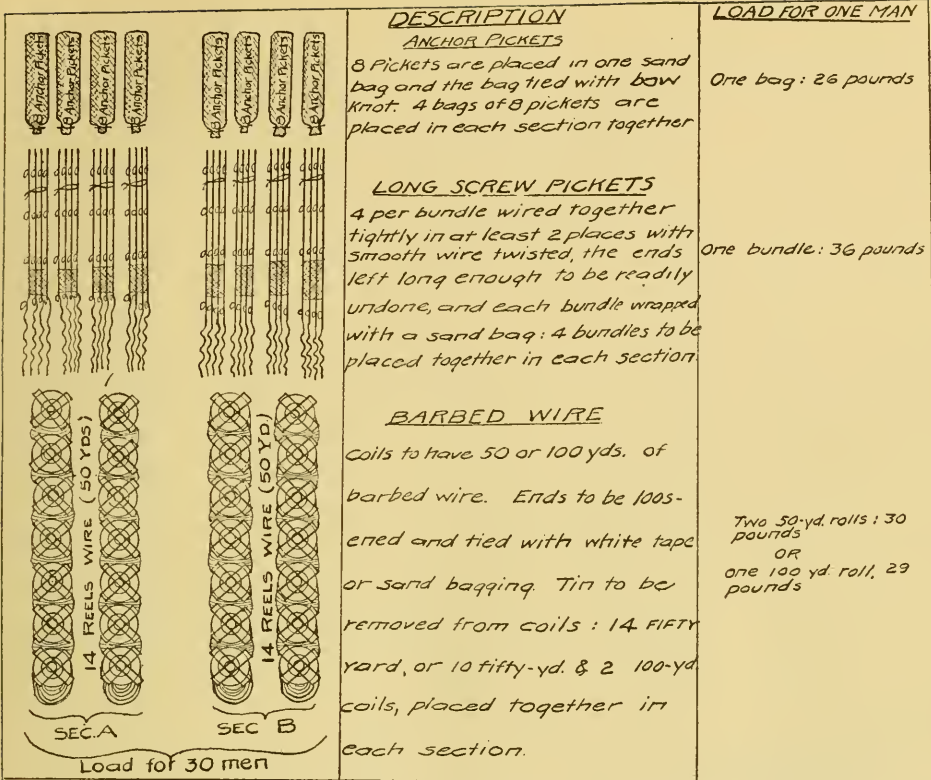 8 Anchor Pickets
8 Anchor Pickets
8 Anchor Pickets
8 Anchor Pickets
8 Anchor Pickets
8 Anchor Pickets
8 Anchor Pickets
8 Anchor Pickets
14 REELS WIRE (50 YDS)
14 REELS WIRE (50 YD)
SEC. A
SEC B
Load for 30 men
DESCRIPTION
ANCHOR PICKETS
8 Pickets are placed in one sand
bag and the bag tied with bow
knot. 4 bags of 8 pickets are
placed in each section together
LONG SCREW PICKETS
4 per bundle wired together
tightly in at least 2 places with
smooth wire twisted, the ends
left long enough to be readily
undone, and each bundle wrapped
with a sand bag: 4 bundles to be
placed together in each section.
BARBED WIRE
Coils to have 50 or 100 yds. of
barbed wire. Ends to be loos-
ened and tied with white tape
or sand bagging. Tin to be
removed from coils : 14 FIFTY
yard, or 10 fifty-yd. & 2 100-yd.
coils, placed together in
each section.
LOAD FOR ONE MAN
One bag: 26 pounds
One bundle: 36 pounds
Two 50-yd. rolls : 30
pounds
OR
one 100 yd roll, 29
pounds